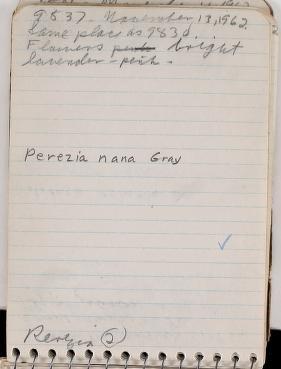 9837. November 13, 1962.
Same place as 9830.
Flowers pink bright
lavender-pink.
Perezia nana Gray
Perezia (5)